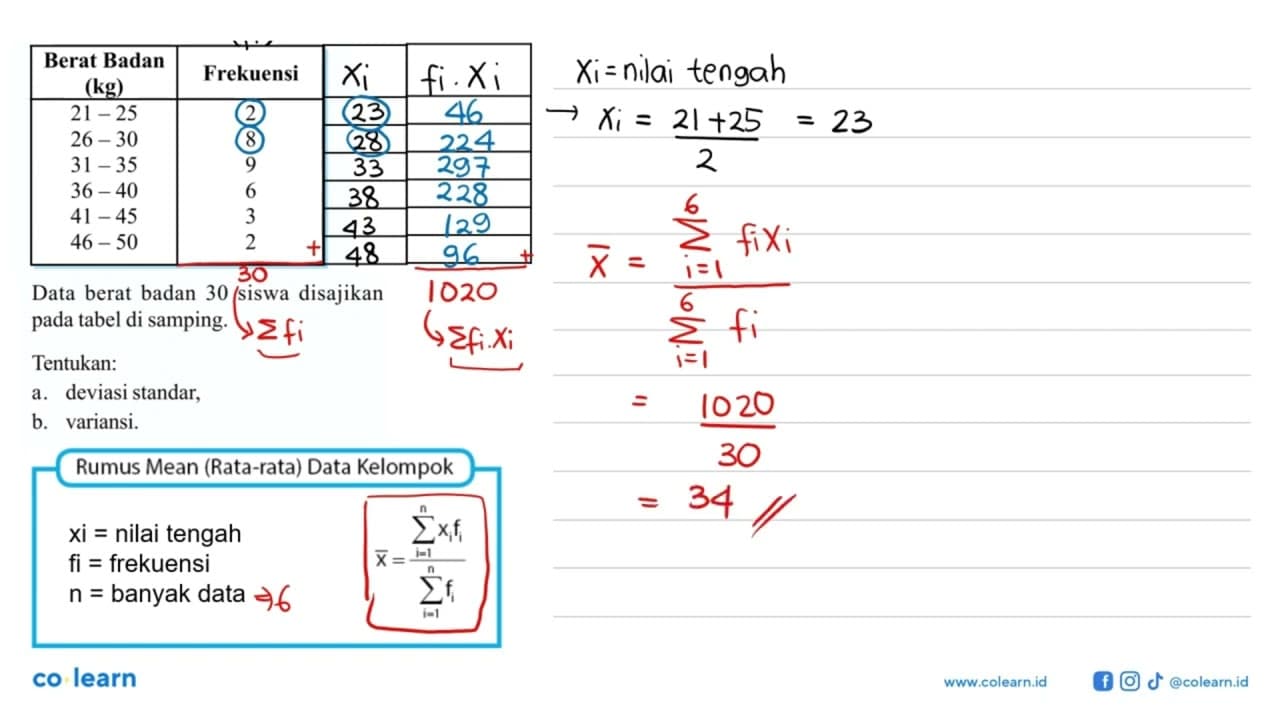 Berat Badan (kg) Frekuensi xi fi . xi
21 – 25 2 23 46
26 – 30 8 28 224
31 – 35 9 33 297
36 – 40 6 38 228
41 – 45 3 43 129
46 – 50 2 + 48 96 +
30 1020
Σfi Σfi.xi
Data berat badan 30 siswa disajikan
pada tabel di samping.
Tentukan:
a. deviasi standar,
b. variansi.
Rumus Mean (Rata-rata) Data Kelompok
xi = nilai tengah
fi = frekuensi
n = banyak data ⇒ 6
x̄ = n Σ i=1 xifi / n Σ i=1 fi
xi = nilai tengah
→ xi = 21 + 25 / 2 = 23
x̄ = 6 Σ i=1 fixi / 6 Σ i=1 fi
= 1020 / 30
= 34 //
co·learn
www.colearn.id @colearn.id